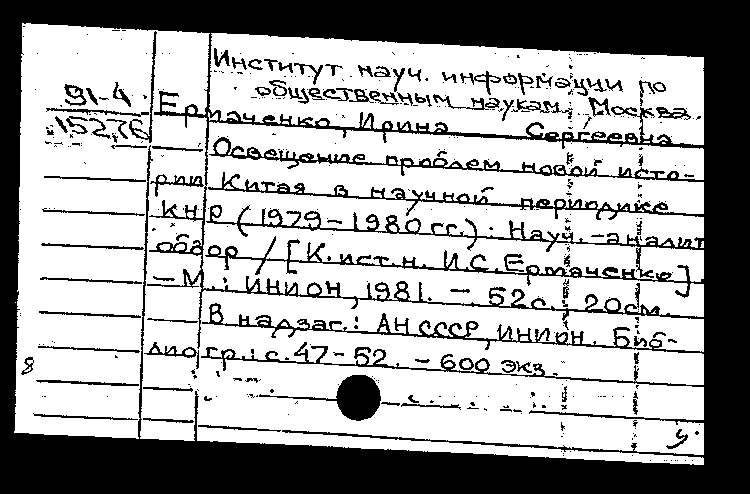 Институт науч. информации по
общественным наукам, Москва.
91-4
152,16
Ермаченко, Ирина Сергеевна
Освещение проблем новой исто-
рии Китая в научной периодике
КНР (1979-1980 гг.): Науч.-аналит
обзор / [К.ист.н. И.С.Ермаченко].
- М.: ИНИОН, 1981. - 52 с.; 20см.
В надзаг.: АН СССР, ИНИОН. Биб-
лиогр.: с. 47-52. - 600 экз.
8
у.